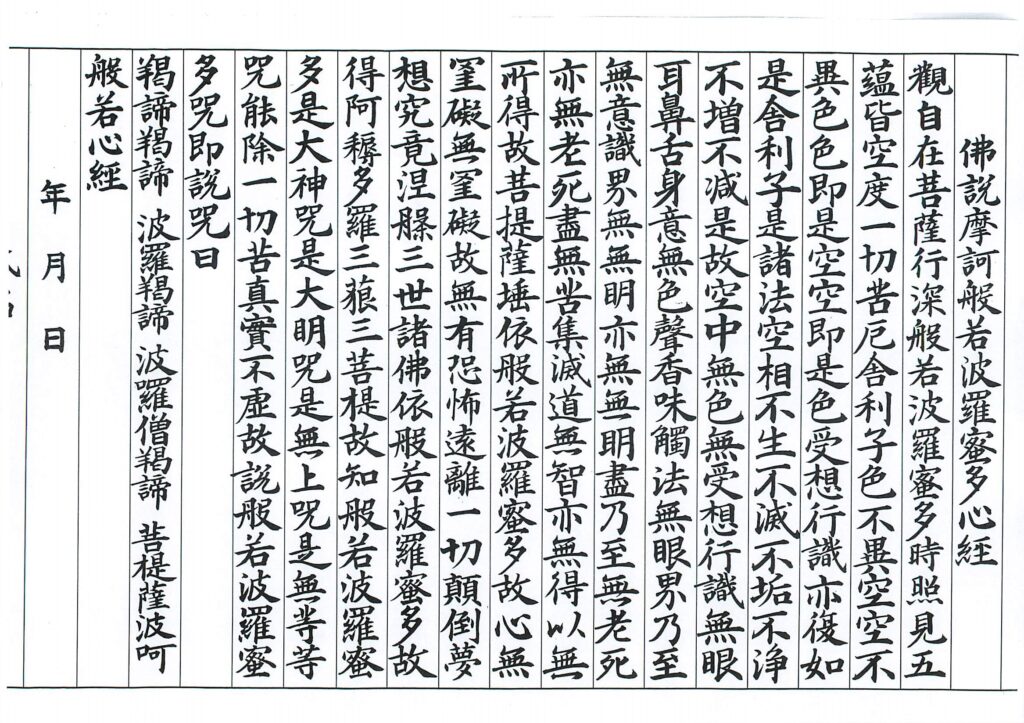 佛説摩訶般若波羅蜜多心經
觀自在菩薩行深般若波羅蜜多時照見五
蘊皆空度一切苦厄舍利子色不異空空不
異色色即是空空即是色受想行識亦復如
是舍利子是諸法空相不生不滅不垢不浄
不增不減是故空中無色無受想行識無眼
耳鼻舌身意無色聲香味觸法無眼界乃至
無意識界無無明亦無無明盡乃至無老死
亦無老死盡無苦集滅道無智亦無得以無
所得故菩提薩埵依般若波羅蜜多故心無
罣礙無罣礙故無有恐怖遠離一切顛倒夢
想究竟涅槃三世諸佛依般若波羅蜜多故
得阿耨多羅三藐三菩提故知般若波羅蜜
多是大神咒是大明咒是無上咒是無等等
咒能除一切苦真實不虚故説般若波羅蜜
多咒即説咒曰
羯諦羯諦 波羅羯諦 波囉僧羯諦 菩提薩波呵
般若心經
年 月 日